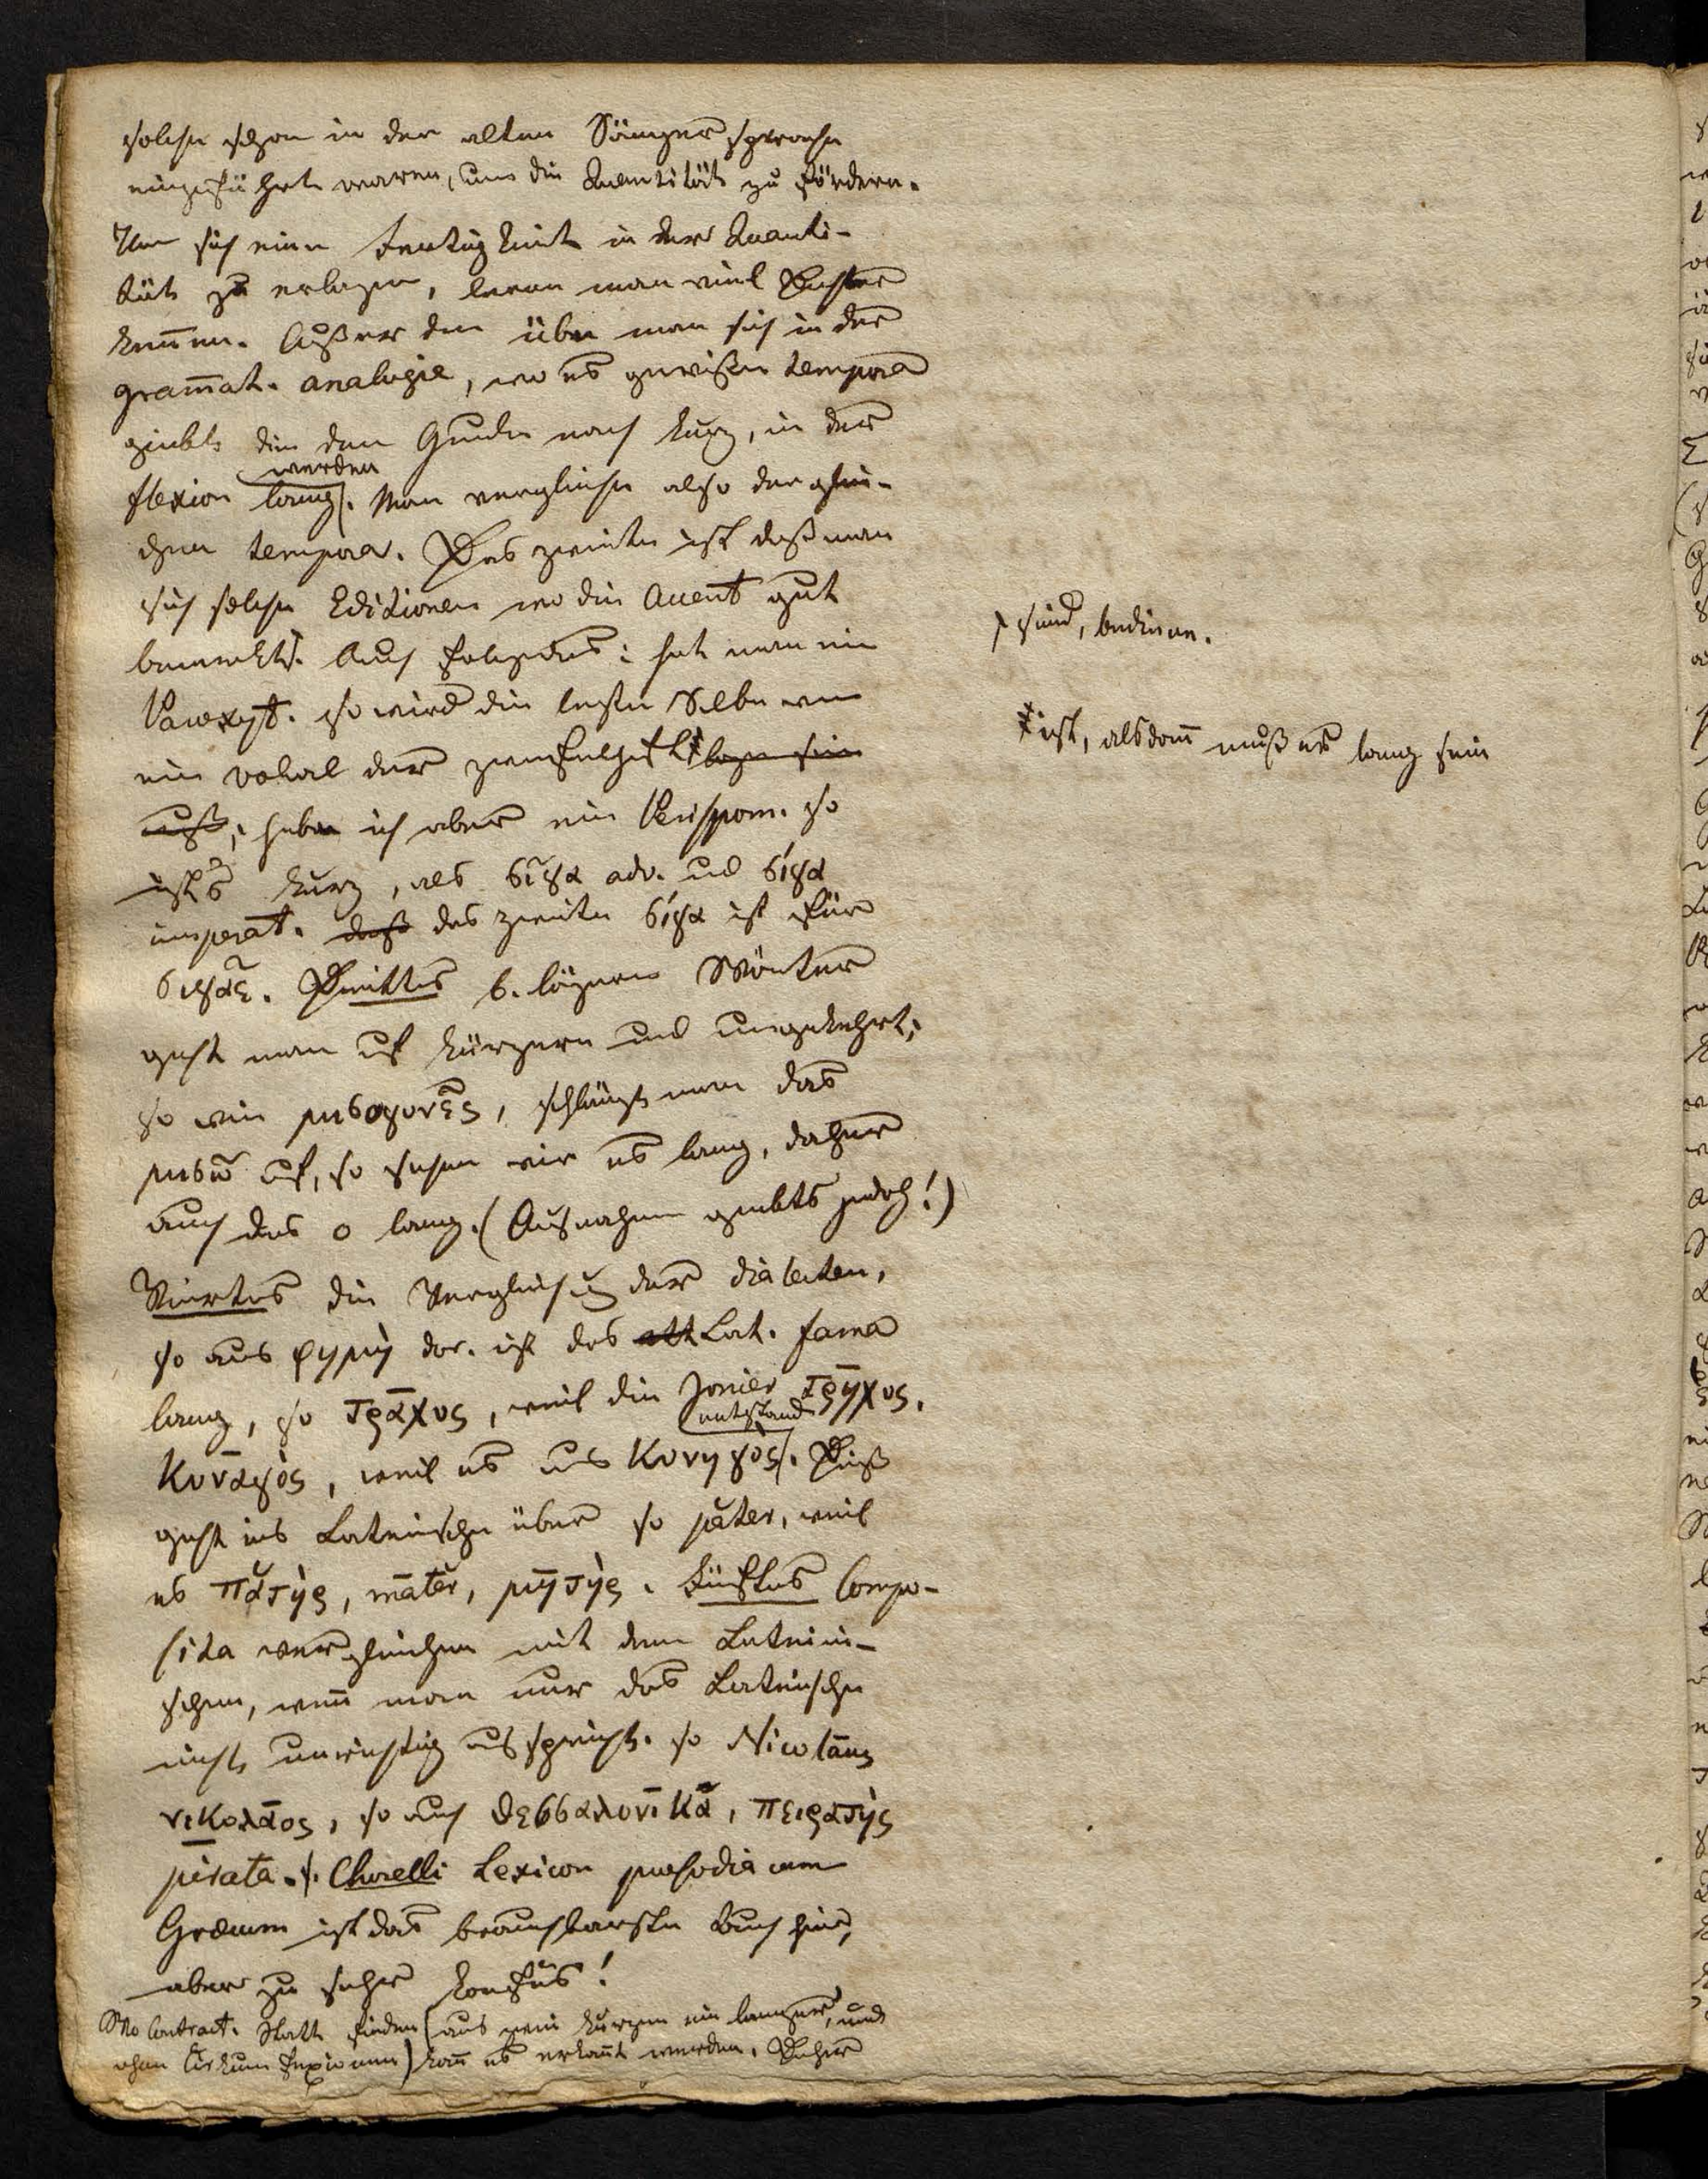 solche schon in der alten Sängersprache
eingeführt waren, um die Quantität zu fördern.
Um sich eine Fertigkeit in der Quanti-
tät zu erlagen, lerne man viel Dichter
keñen. Außer dem übe man sich in der
gram̄at. analogie, wo es gewiße tempora
giebt die den Grunde nach kurz, in der
werden
flexion lang. Man vergleiche also der glei-
chen tempora. Das zweite ist daß man
sich solche Editionen wo die Accent gut
bemerkt. Auch folgendes: hat man ein
Paroxyt. so wird die letste Silbe wen
ein vokal der
muß; habe ich aber ein Perispom. so
ist's kurz, als σῖγα adv. ud σίγα
imperat. daß das zweite σίγα ist für
σιγᾶε. Drittes b. längern Wörter
geht man uf kürzern und umgekehrt;
so wie μισογυνης, schlägt man das
μισῶ uf, so sehen wir es lang, daher
auch das o lang. (Ausnahmen giebts jedoch!)
Viertes die Vergleichung der dialecten,
so aus φημὴ dor. ist das att Lat. fama
lang, so τρᾱχυς, weil die Jonier τρηχυς,
entstand
Κυνᾱγὸς, weil es aus Κυνηγὸς. Dieß
geht ins Lateinische über so păter, weil
es πᾰτὴρ, māter, μητὴρ. Fünftes Compo-
sita vergleichen mit dem Lateini-
schen, weñ man nur das Lateinische
nicht unrichtig ausspricht. so Nicolāus
νικολᾱος, so auch θεσσαλονῑκᾱ, πειρατὴς
pirata. f. Chorelli Lexicon prosodiacum
Græcum ist das brauchbarste Buch hier,
aber zu sehr konfūs!
Wo Contract. Statt finden (aus zwei kurzen ein langer, und
ohne Cirkumflexionem) kañ es erkañt werden. Daher
sind, bediene.
ist, alsdañ muß es lang sein